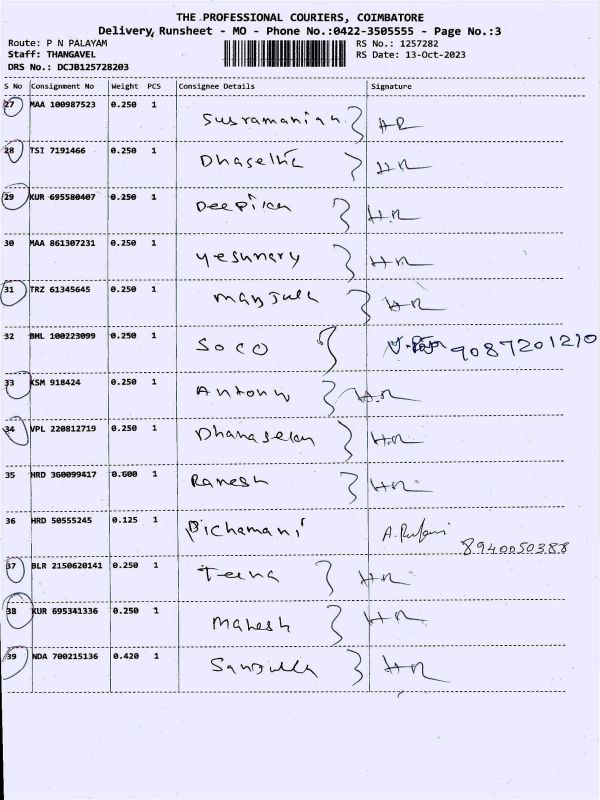 THE PROFESSIONAL COURIERS, COIMBATORE
Delivery Runsheet - MO - Phone No.:0422-3505555 - Page No.:3
Route: P N PALAYAM RS No.: 1257282
Staff: THANGAVEL RS Date: 13-Oct-2023
DRS No.: DCJB125728203
S No Consignment No Weight PCS Consignee Details Signature
27 MAA 100987523 0.250 1
Susramanian HR
28 TSI 7191466 0.250 1
HR
29 KUR 695580407 0.250 1
Deepika HR
30 MAA 861307231 0.250 1
Yesumary HR
31 TRZ 61345645 0.250 1
Manjula HR
32 BML 100223099 0.250 1
SOCO 9087201210
33 KSM 918424 0.250 1
Antony HR
34 VPL 220812719 0.250 1
Dhanaselan HR
35 HRD 360099417 0.600 1
Ramesh HR
36 HRD 50555245 0.125 1
Pichamani
8940050388
37 BLR 2150620141 0.250 1
Teena HR
38 KUR 695341336 0.250 1
Mahesh HR
39 NDA 700215136 0.420 1
HR